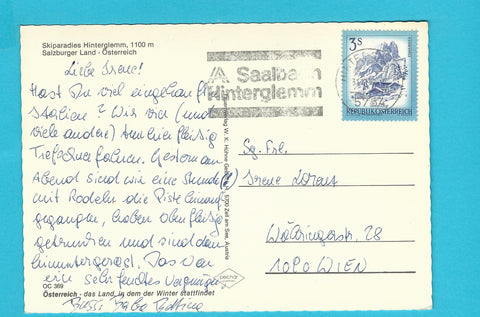 Skiparadies Hinterglemm, 1100 m
Salzburger Land - Österreich
Liebe Irene!
Hast Du viel eingekauft
Wir vier (und
viele andere) tun hier fleißig
Tiefschneefahren. Gestern am
Abend sind wir eine Stunde (!)
mit Rodeln die Piste hinauf-
gegangen, haben oben fleißig
getrunken und sind dann
hinuntergerast. Das war
ein sehr feuchtes Vergnügen.
Bussi Bettina
OC 369
Österreich - das Land, in dem der Winter stattfindet
Saalbach
Hinterglemm
3 S
REPUBLIK ÖSTERREICH
5754
Verlag W. K. Höhne
5700 Zell am See, Austria
Sg. Frl.
Irene
Währingerstr. 28
1090 WIEN